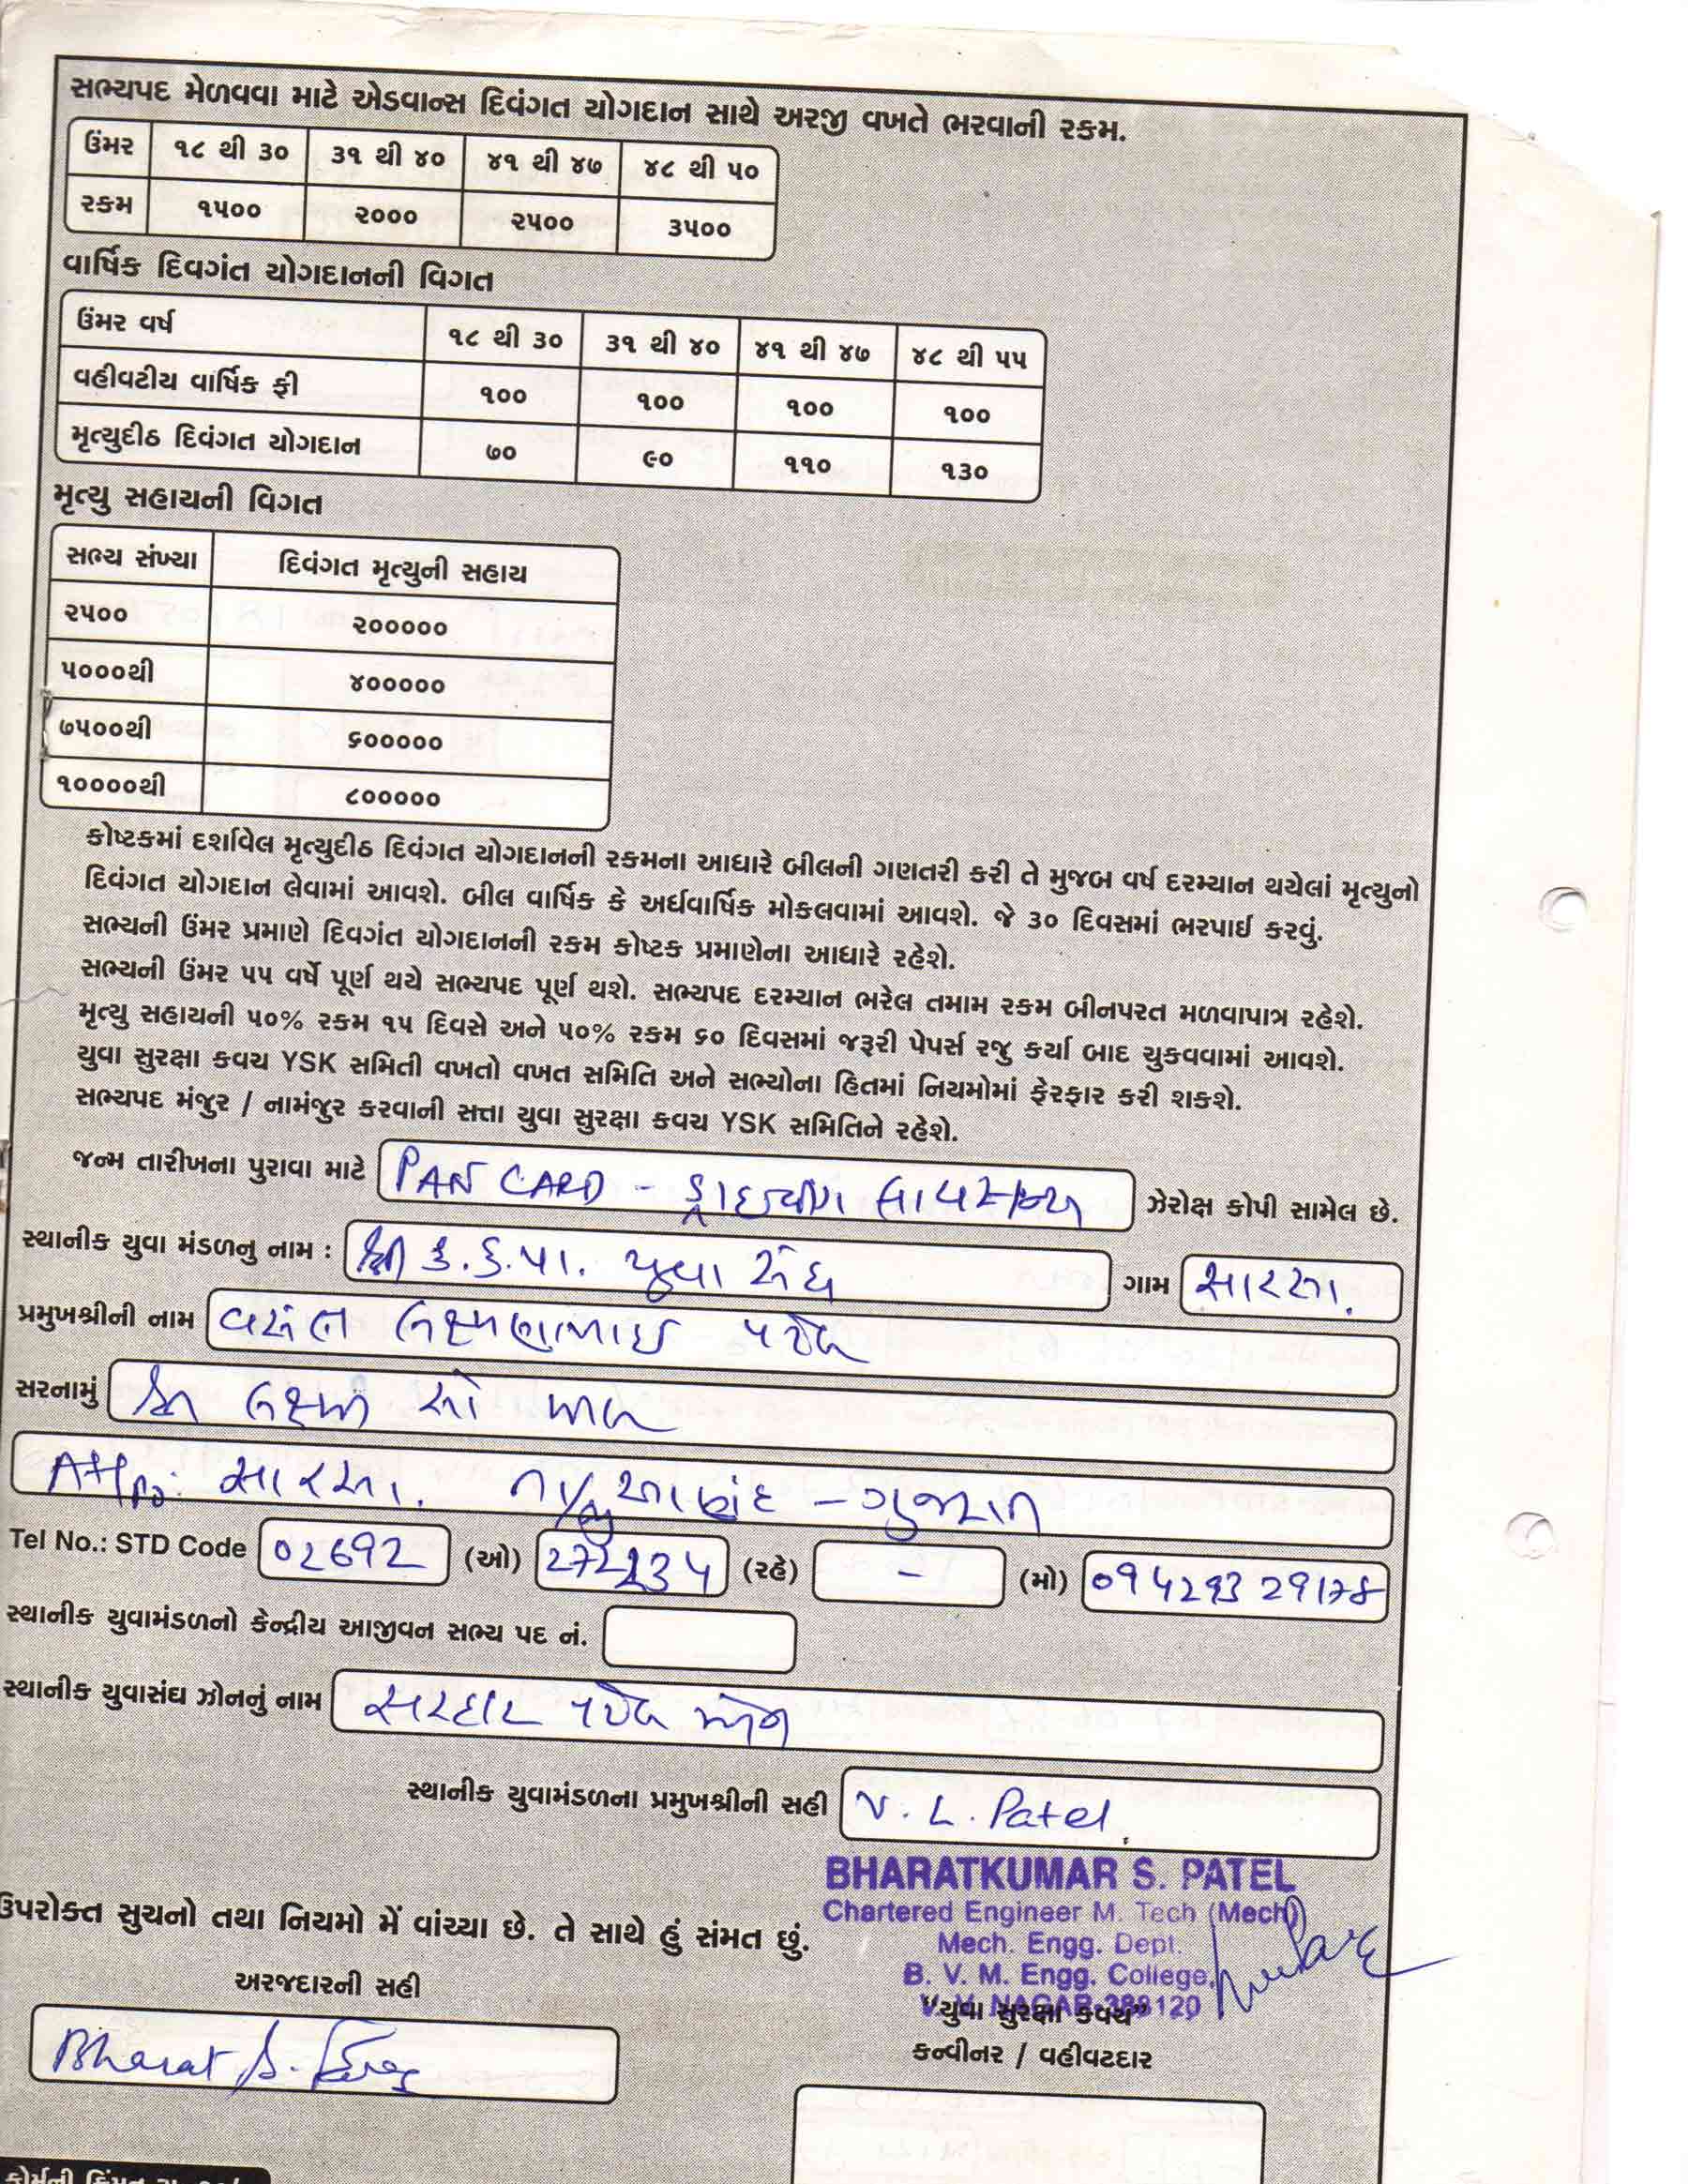 સભ્યપદ મેળવવા માટે એડવાન્સ દિવંગત યોગદાન સાથે અરજી વખતે ભરવાની રકમ.
ઉંમર ૧૮ થી ૩૦ ૩૧ થી ૪૦ ૪૧ થી ૪૭ ૪૮ થી ૫૦
રકમ ૧૫૦૦ ૨૦૦૦ ૨૫૦૦ ૩૫૦૦
વાર્ષિક દિવગંત યોગદાનની વિગત
ઉંમર વર્ષ ૧૮ થી ૩૦ ૩૧ થી ૪૦ ૪૧ થી ૪૭ ૪૮ થી ૫૫
વહીવટીય વાર્ષિક ફી ૧૦૦ ૧૦૦ ૧૦૦ ૧૦૦
મૃત્યુદીઠ દિવંગત યોગદાન ૭૦ ૯૦ ૧૧૦ ૧૩૦
મૃત્યુ સહાયની વિગત
સભ્ય સંખ્યા દિવંગત મૃત્યુની સહાય
૨૫૦૦ ૨૦૦૦૦૦
૫૦૦૦થી ૪૦૦૦૦૦
૭૫૦૦થી ૬૦૦૦૦૦
૧૦૦૦૦થી ૮૦૦૦૦૦
કોષ્ટકમાં દર્શાવેલ મૃત્યુદીઠ દિવંગત યોગદાનની રકમના આધારે બીલની ગણતરી કરી તે મુજબ વર્ષ દરમ્યાન થયેલાં મૃત્યુનો
દિવંગત યોગદાન લેવામાં આવશે. બીલ વાર્ષિક કે અર્ધવાર્ષિક મોકલવામાં આવશે. જે ૩૦ દિવસમાં ભરપાઈ કરવું.
સભ્યની ઉંમર પ્રમાણે દિવગંત યોગદાનની રકમ કોષ્ટક પ્રમાણેના આધારે રહેશે.
સભ્યની ઉંમર ૫૫ વર્ષે પૂર્ણ થયે સભ્યપદ પૂર્ણ થશે. સભ્યપદ દરમ્યાન ભરેલ તમામ રકમ બીનપરત મળવાપાત્ર રહેશે.
મૃત્યુ સહાયની ૫૦% રકમ ૧૫ દિવસે અને ૫૦% રકમ ૬૦ દિવસમાં જરૂરી પેપર્સ રજુ કર્યા બાદ ચુકવવામાં આવશે.
યુવા સુરક્ષા કવચ YSK સમિતી વખતો વખત સમિતિ અને સભ્યોના હિતમાં નિયમોમાં ફેરફાર કરી શકશે.
સભ્યપદ મંજુર / નામંજુર કરવાની સત્તા યુવા સુરક્ષા કવચ YSK સમિતિને રહેશે.
જન્મ તારીખના પુરાવા માટે PAN CARD - ડ્રાઇવીંગ લાયસન્સ ઝેરોક્ષ કોપી સામેલ છે.
સ્થાનીક યુવા મંડળનુ નામ : શ્રી ક.ક.પા. યુવા સંઘ ગામ સારસા.
પ્રમુખશ્રીની નામ વસંત લક્ષ્મણભાઇ પટેલ
સરનામું શ્રી લક્ષ્મી સો મીલ
At/Po: સારસા. તા/જી આણંદ - ગુજરાત
Tel No.: STD Code 02692 (ઓ) (રહે) - (મો) 09429329178
સ્થાનીક યુવામંડળનો કેન્દ્રીય આજીવન સભ્ય પદ નં.
સ્થાનીક યુવાસંઘ ઝોનનું નામ સરદાર પટેલ ઝોન
સ્થાનીક યુવામંડળના પ્રમુખશ્રીની સહી V. L. Patel
BHARATKUMAR S. PATEL
Chartered Engineer M. Tech (Mech)
Mech. Engg. Dept.
B. V. M. Engg. College,
V. V. NAGAR-388120
ઉપરોક્ત સુચનો તથા નિયમો મેં વાંચ્યા છે. તે સાથે હું સંમત છું.
"યુવા સુરક્ષા કવચ"
અરજદારની સહી
કન્વીનર / વહીવટદાર
Bharat S.